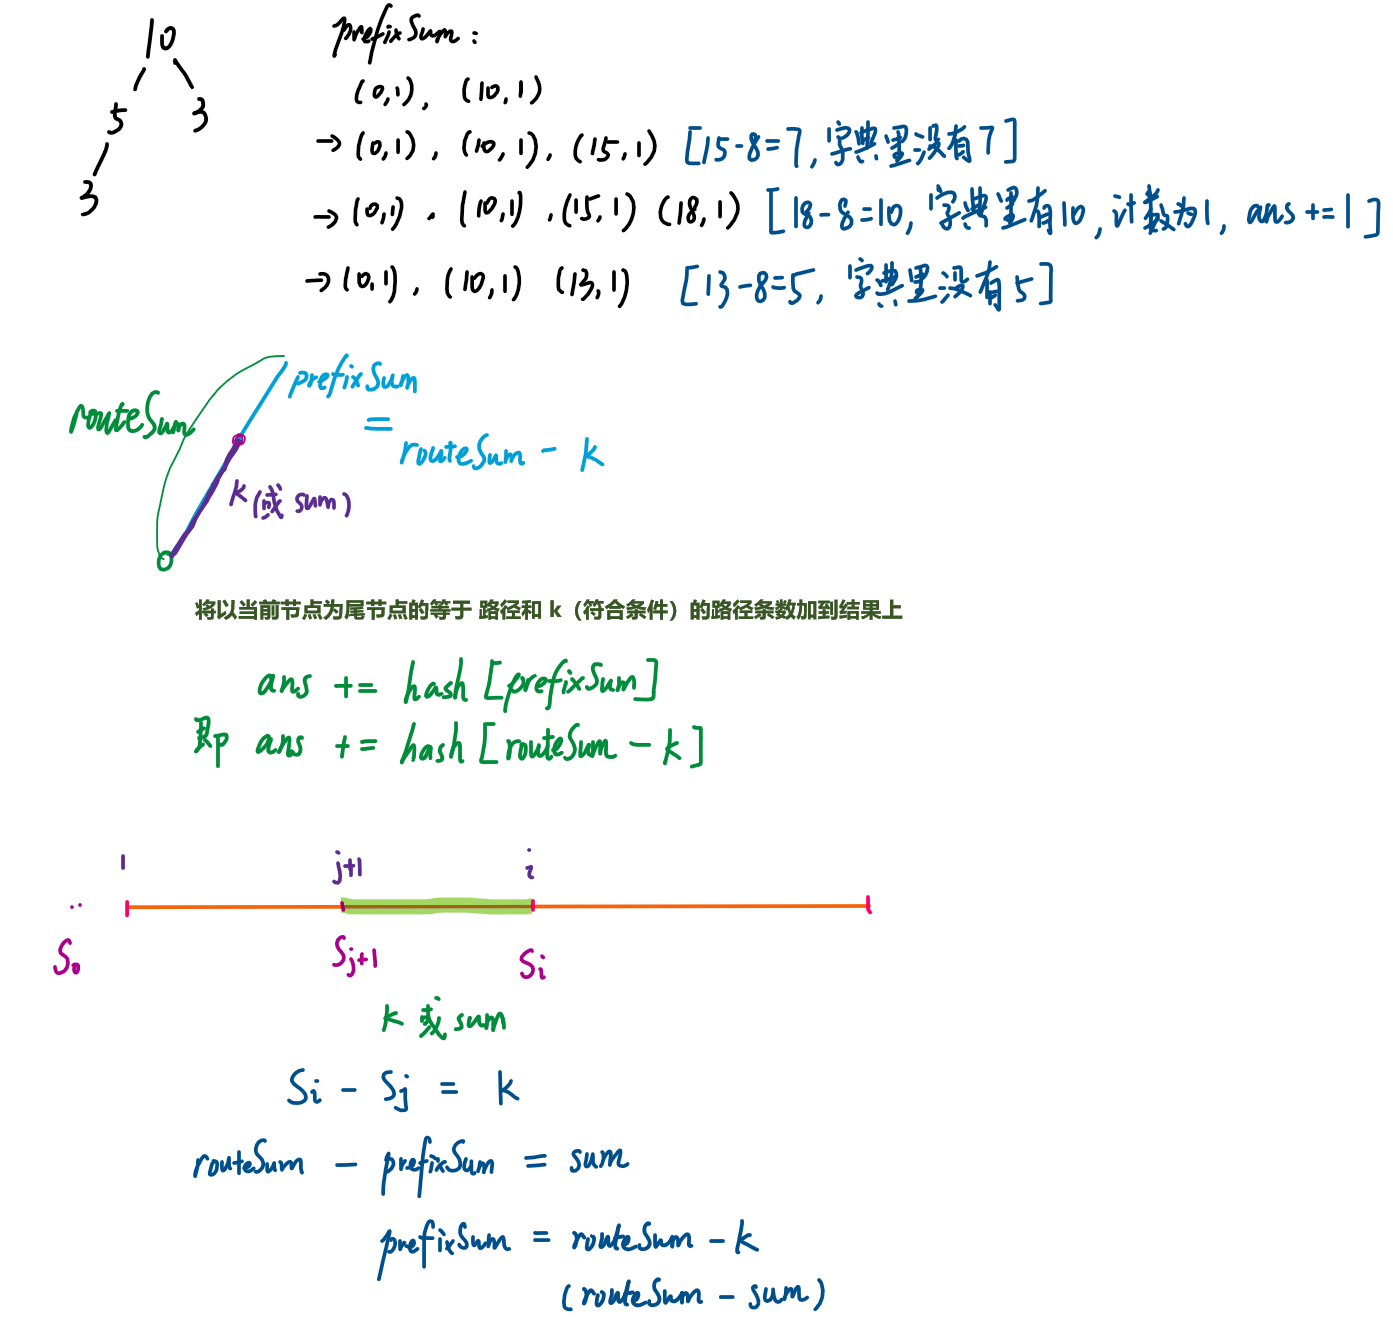 10
5 3
3
prefixSum:
(0,1), (10,1)
→ (0,1), (10,1), (15,1) [15-8=7, 字典里没有7]
→ (0,1), (10,1), (15,1) (18,1) [18-8=10, 字典里有10, 计数为1, ans+=1]
→ (0,1), (10,1) (13,1) [13-8=5, 字典里没有5]
routeSum
prefixSum
=
routeSum - k
k(或 sum)
将以当前节点为尾节点的等于 路径和 k（符合条件）的路径条数加到结果上
ans += hash[prefixSum]
即 ans += hash[routeSum - k]
1 j+1 i
S₀ Sj+1 Si
k 或 sum
Si - Sj = k
routeSum - prefixSum = sum
prefixSum = routeSum - k
(routeSum - sum)